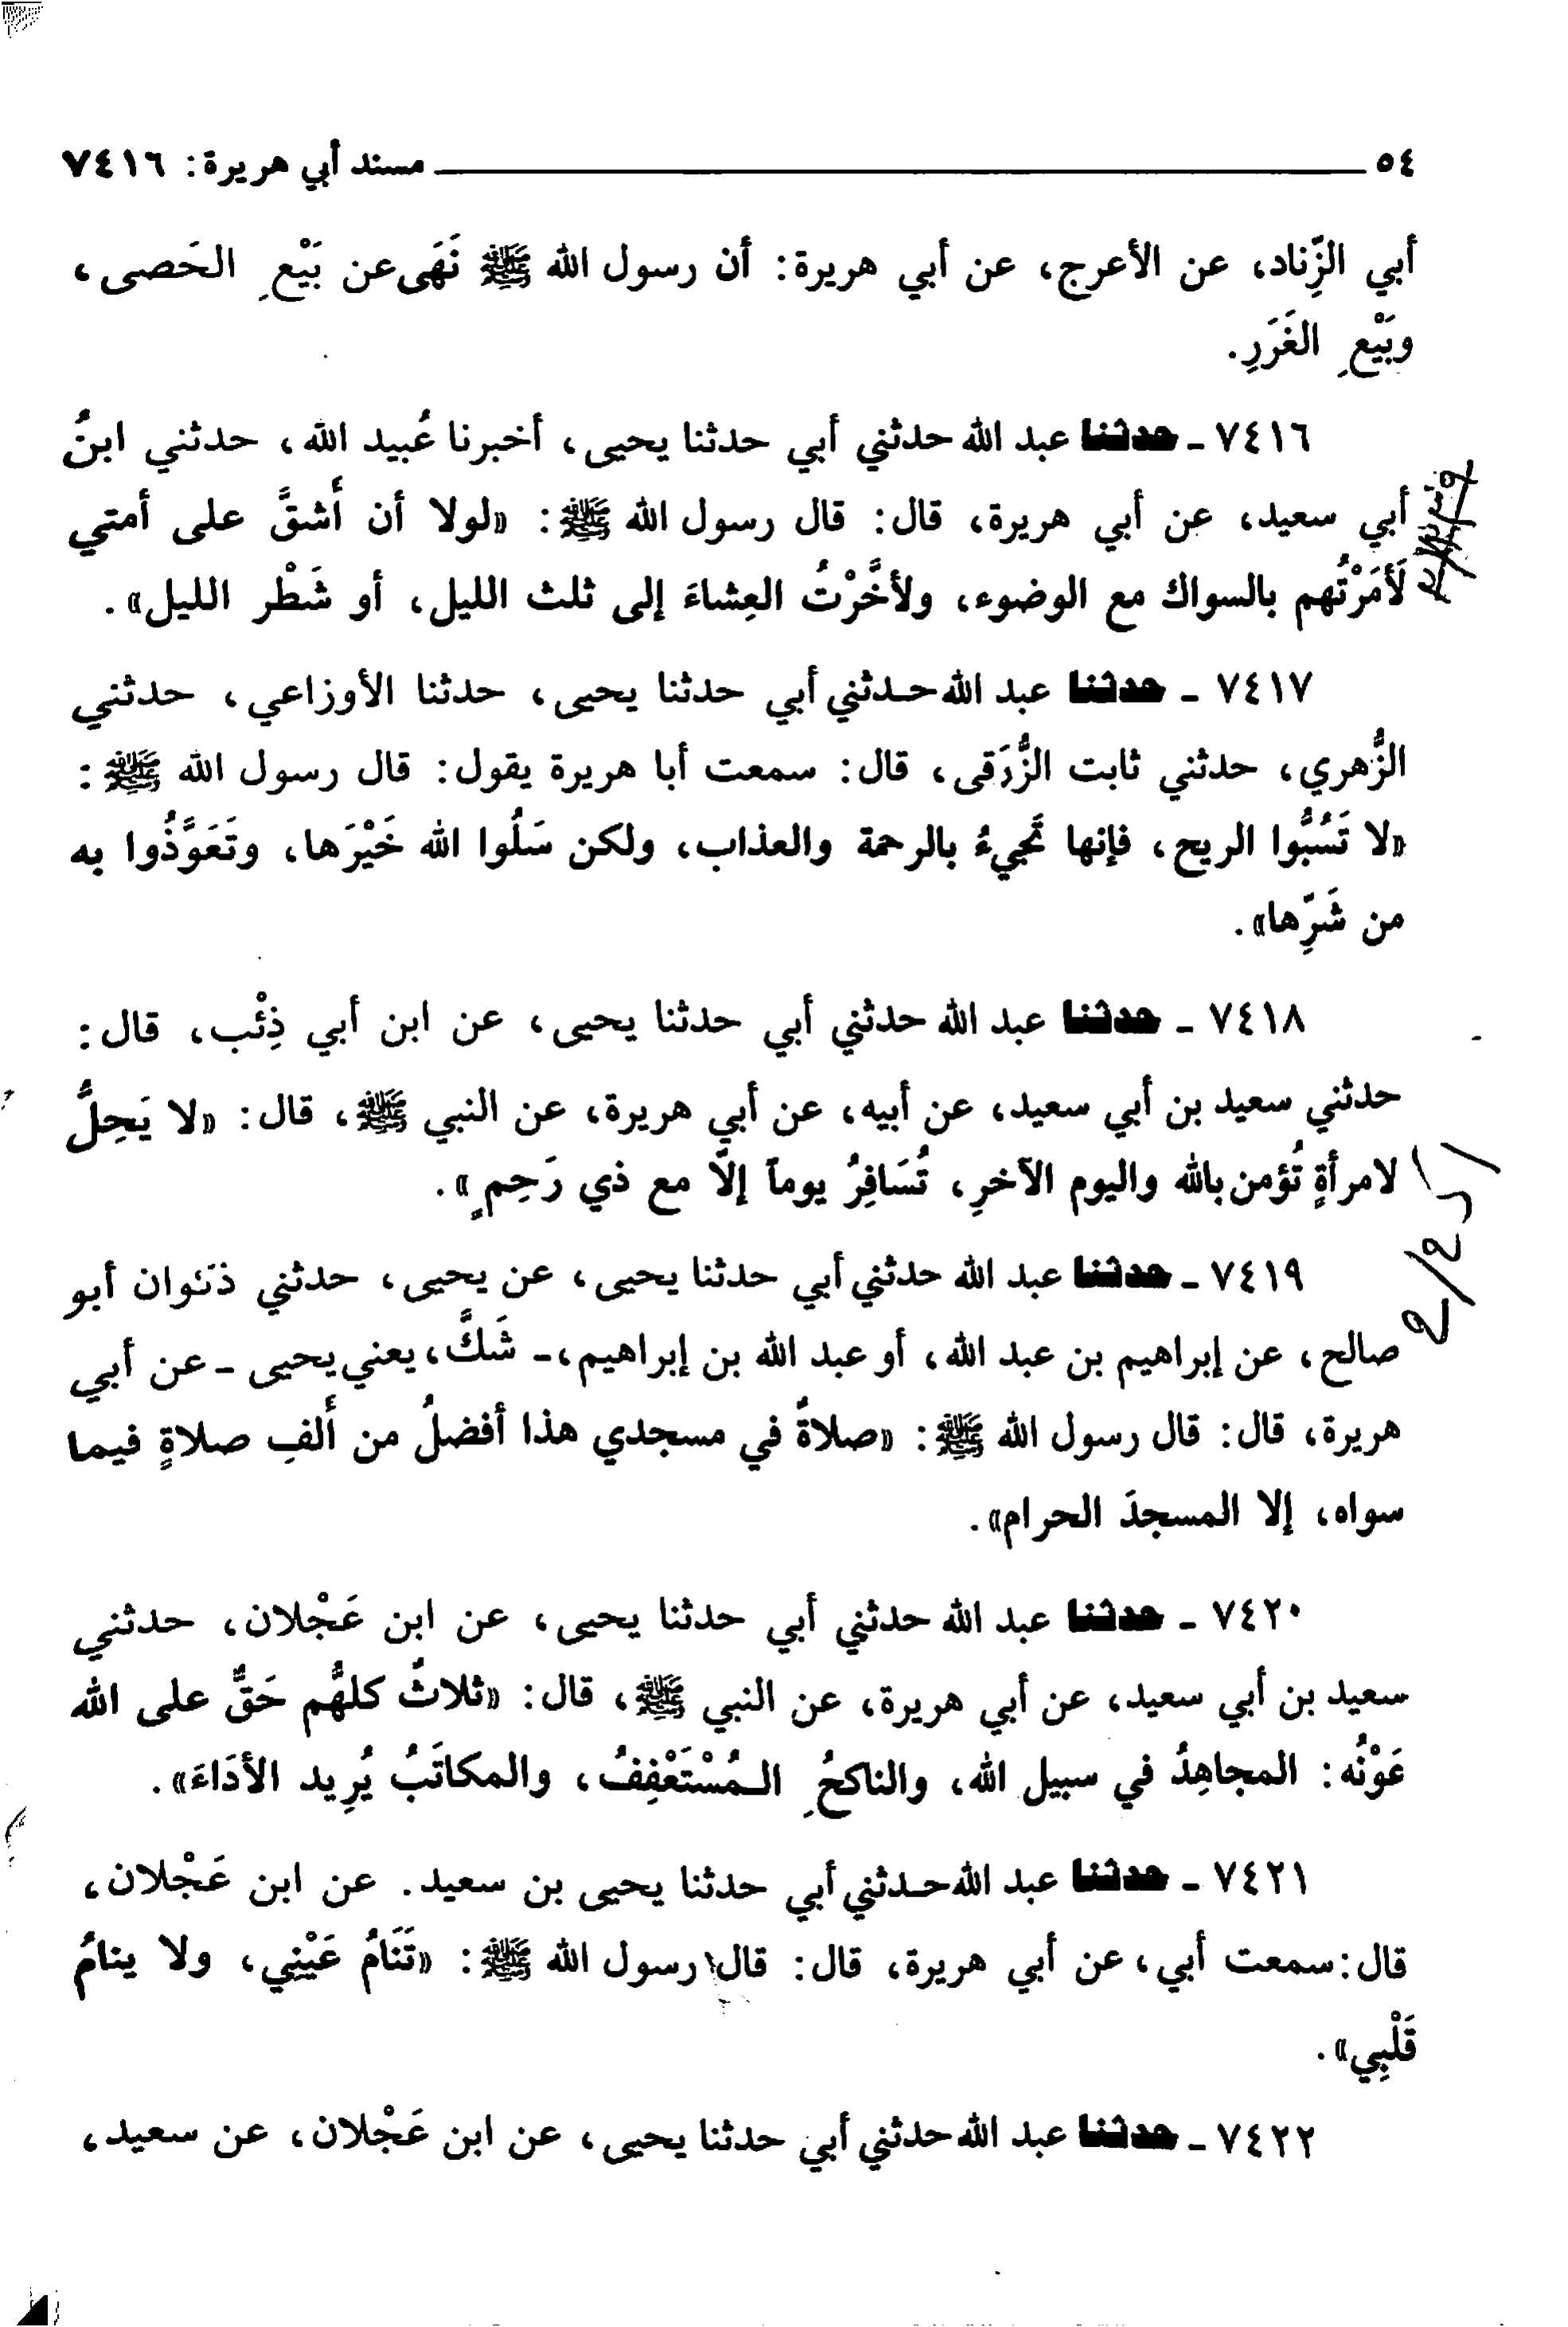 ٥٤ مسند أبي هريرة: ٧٤١٦
أبي الزِّناد، عن الأعرج، عن أبي هريرة: أن رسول الله ﷺ نَهَى عن بَيْعِ الحَصى،
وبَيْعِ الغَرَرِ.
٧٤١٦ ـ حدثنا عبد الله حدثني أبي حدثنا يحيى، أخبرنا عُبيد الله، حدثني ابنُ
أبي سعيد، عن أبي هريرة، قال: قال رسول الله ﷺ: «لولا أن أَشقَّ على أمتي
لَأمَرْتُهم بالسواك مع الوضوء، ولأخَّرْتُ العِشاءَ إلى ثلث الليل، أو شَطْر الليل».
٧٤١٧ ـ حدثنا عبد الله حدثني أبي حدثنا يحيى، حدثنا الأوزاعي، حدثني
الزُّهري، حدثني ثابت الزُّرَقى، قال: سمعت أبا هريرة يقول: قال رسول الله ﷺ:
«لا تَسُبُّوا الريح، فإنها تَجيءُ بالرحمة والعذاب، ولكن سَلُوا الله خَيْرَها، وتَعَوَّذُوا به
من شَرِّها».
٧٤١٨ ـ حدثنا عبد الله حدثني أبي حدثنا يحيى، عن ابن أبي ذِئْب، قال:
حدثني سعيد بن أبي سعيد، عن أبيه، عن أبي هريرة، عن النبي ﷺ، قال: «لا يَحِلُّ
لامرأةٍ تُؤمن بالله واليوم الآخرِ، تُسَافِرُ يوماً إلاَّ مع ذي رَحِمٍ».
٧٤١٩ ـ حدثنا عبد الله حدثني أبي حدثنا يحيى، عن يحيى، حدثني ذكوان أبو
صالح، عن إبراهيم بن عبد الله، أو عبد الله بن إبراهيم، ـ شَكَّ، يعني يحيى ـ عن أبي
هريرة، قال: قال رسول الله ﷺ: «صلاةٌ في مسجدي هذا أفضلُ من أَلفِ صلاةٍ فيما
سواه، إلا المسجدَ الحرام».
٧٤٢٠ ـ حدثنا عبد الله حدثني أبي حدثنا يحيى، عن ابن عَجْلان، حدثني
سعيد بن أبي سعيد، عن أبي هريرة، عن النبي ﷺ، قال: «ثلاثٌ كلهُّم حَقٌّ على الله
عَوْنُه: المجاهِدُ في سبيل الله، والناكحُِ الـمُسْتَعْفِفُ، والمكاتَبُ يُرِيد الأدَاءَ».
٧٤٢١ ـ حدثنا عبد الله حدثني أبي حدثنا يحيى بن سعيد. عن ابن عَجْلان،
قال: سمعت أبي، عن أبي هريرة، قال: قال رسول الله ﷺ: «تَنَامُ عَيْنِي، ولا ينامُ
قَلْبِي».
٧٤٢٢ ـ حدثنا عبد الله حدثني أبي حدثنا يحيى، عن ابن عَجْلان، عن سعيد،